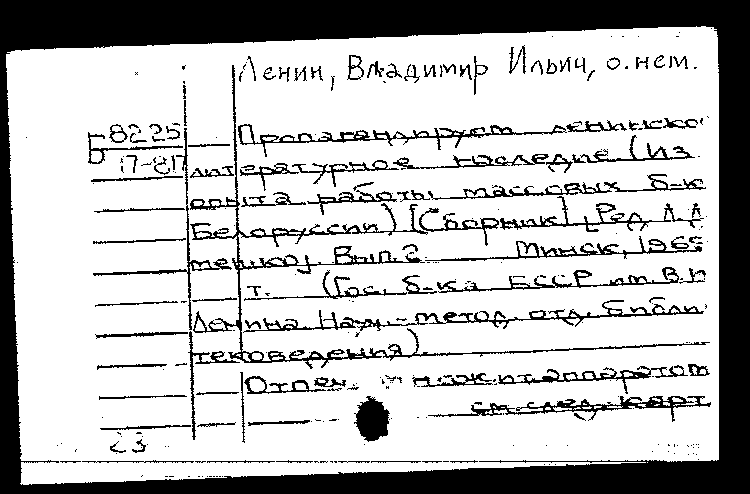 Ленин, Владимир Ильич, о нем.
Б-8225
17-817
Пропагандируем ленинско
литературное наследие. (Из
опыта работы массовых б-к
Белоруссии) [Сборник]. [Ред. Л. Д.
Вып. 2 Минск, 1965
т. (Гос. б-ка БССР им. В. И
Ленина. Науч.-метод. отд. библи
тековедения).
Отпеч. множит. аппаратом
см. след. карт.
23